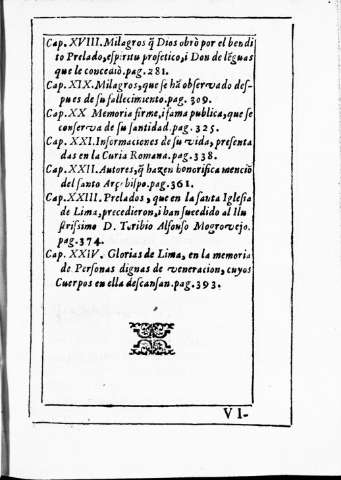 Cap. XVIII. Milagros q̃ Dios obrò por el bendi
to Prelado, espiritu profetico, i Don de lẽguas
que le concediò. pag. 281.
Cap. XIX. Milagros, que se hã observado des-
pues de su fallecimiento. pag. 309.
Cap. XX Memoria firme, i fama publica, que se
conserva de su santidad. pag. 325.
Cap. XXI. Informaciones de su vida, presenta
das en la Curia Romana. pag. 338.
Cap. XXII. Autores, q̃ hazen honorifica menciõ
del santo Arçobispo. pag. 361.
Cap. XXIII. Prelados, que en la santa Iglesia
de Lima, precedieron, i han sucedido al Ilu
strissimo D. Toribio Alfonso Mogrovejo.
pag. 374.
Cap. XXIV. Glorias de Lima, en la memoria
de Personas dignas de veneracion, cuyos
Cuerpos en ella descansan. pag. 393.
VI-